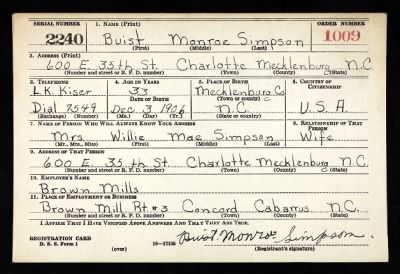 SERIAL NUMBER 1. NAME (Print) ORDER NUMBER
2240 Buist Monroe Simpson 1009
(First) (Middle) (Last)
2. ADDRESS (Print)
600 E. 35th St. Charlotte Mecklenburg N.C
(Number and street or R. F. D. number) (Town) (County) (State)
3. TELEPHONE 4. AGE IN YEARS 5. PLACE OF BIRTH 6. COUNTRY OF CITIZENSHIP
L.K. Kiser 33 Mecklenburg Co
DATE OF BIRTH (Town or county)
Dial 7549 Dec. 3, 1906 N.C. U.S.A.
(Exchange) (Number) (Mo.) (Day) (Yr.) (State or country)
7. NAME OF PERSON WHO WILL ALWAYS KNOW YOUR ADDRESS 8. RELATIONSHIP OF THAT PERSON
Mrs. Willie Mae Simpson Wife
(Mr., Mrs., Miss) (First) (Middle) (Last)
9. ADDRESS OF THAT PERSON
600 E. 35th St. Charlotte Mecklenburg N.C.
(Number and street or R. F. D. number) (Town) (County) (State)
10. EMPLOYER'S NAME
Brown Mills
11. PLACE OF EMPLOYMENT OR BUSINESS
Brown Mill Rt #3 Concord Cabarrus N.C.
(Number and street or R. F. D. number) (Town) (County) (State)
I AFFIRM THAT I HAVE VERIFIED ABOVE ANSWERS AND THAT THEY ARE TRUE.
REGISTRATION CARD
D. S. S. Form 1 (over) 16—17105 Buist Monroe Simpson.
(Registrant's signature)